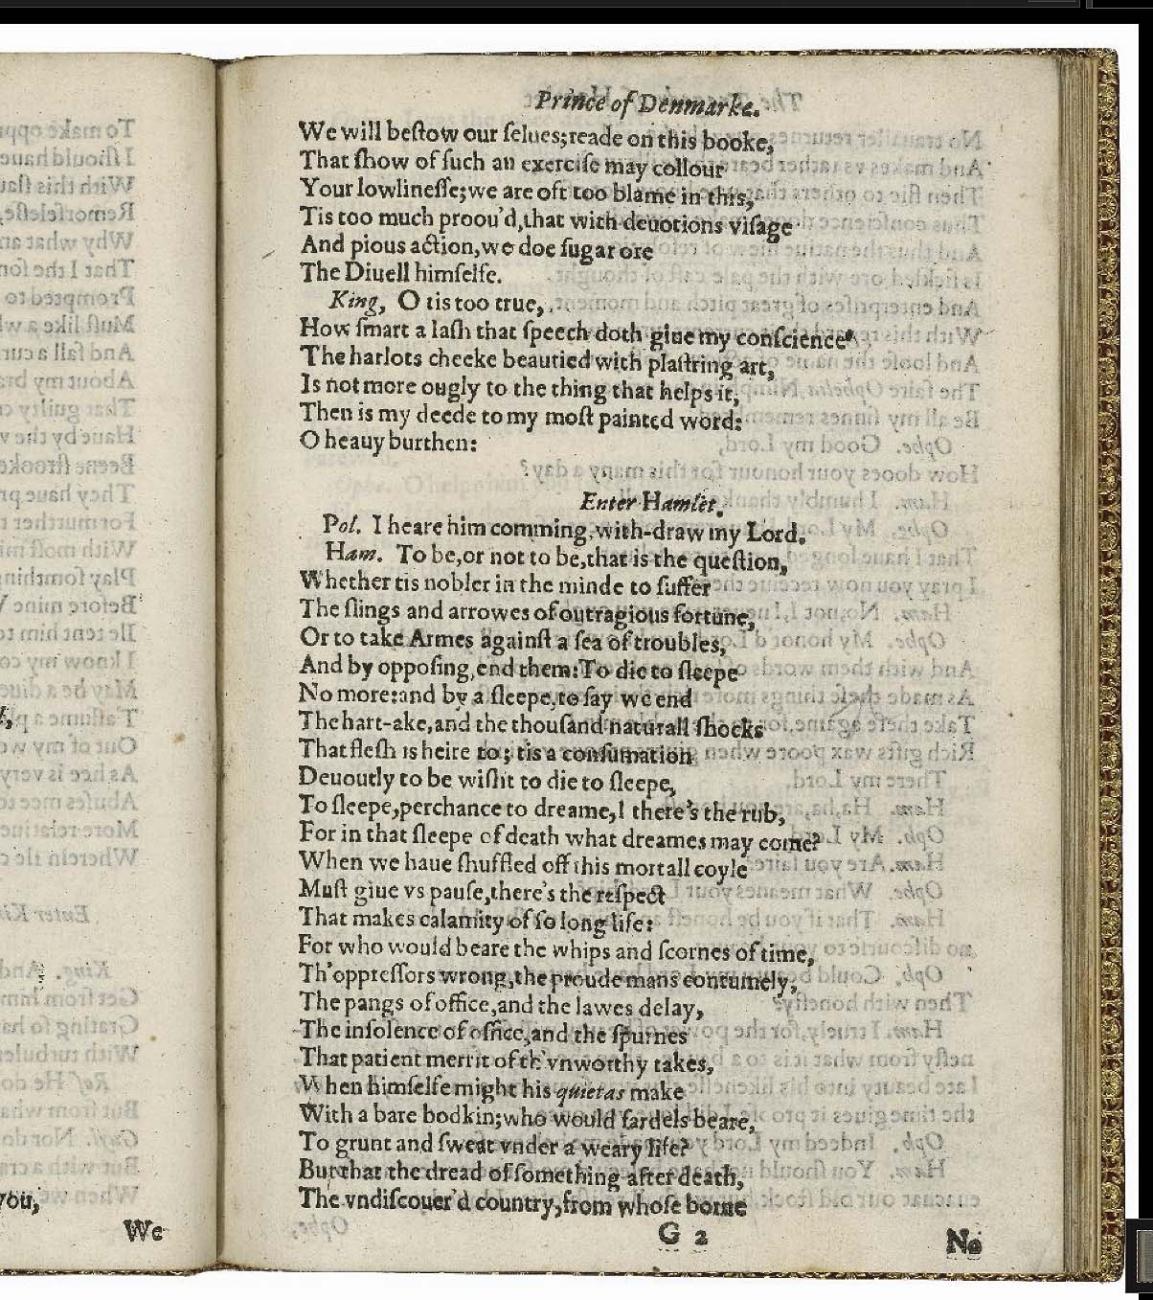 Prince of Denmarke.
We will beſtow our ſelues; reade on this booke,
That ſhow of ſuch an exerciſe may collour
Your lowlineſſe; we are oft too blame in this,
Tis too much proou'd, that with deuotions viſage
And pious action, we doe ſugar ore
The Diuell himſelfe.
King, O tis too true,
How ſmart a laſh that ſpeech doth giue my conſcience
The harlots cheeke beautied with plaſtring art,
Is not more ougly to the thing that helps it,
Then is my deede to my moſt painted word:
O heauy burthen:
Enter Hamlet.
Pol. I heare him comming, with-draw my Lord.
Ham. To be, or not to be, that is the queſtion,
Whether tis nobler in the minde to ſuffer
The ſlings and arrowes of outragious fortune,
Or to take Armes againſt a ſea of troubles,
And by oppoſing, end them: To die to ſleepe
No more: and by a ſleepe, to ſay we end
The hart-ake, and the thouſand naturall ſhocks
That fleſh is heire to; tis a conſumation
Deuoutly to be wiſht to die to ſleepe,
To ſleepe, perchance to dreame, I there's the rub,
For in that ſleepe of death what dreames may come?
When we haue ſhuffled off this mortall coyle
Muſt giue vs pauſe, there's the reſpect
That makes calamity of ſo long life:
For who would beare the whips and ſcornes of time,
Th'oppreſſors wrong, the proude mans contumely,
The pangs of office, and the lawes delay,
The inſolence of office, and the ſpurnes
That patient merrit of th'vnworthy takes,
When himſelfe might his quietas make
With a bare bodkin; who would fardels beare,
To grunt and ſweat vnder a weary life?
But that the dread of ſomething after death,
The vndiſcouer'd country, from whoſe borne
G 2
No
you,
We